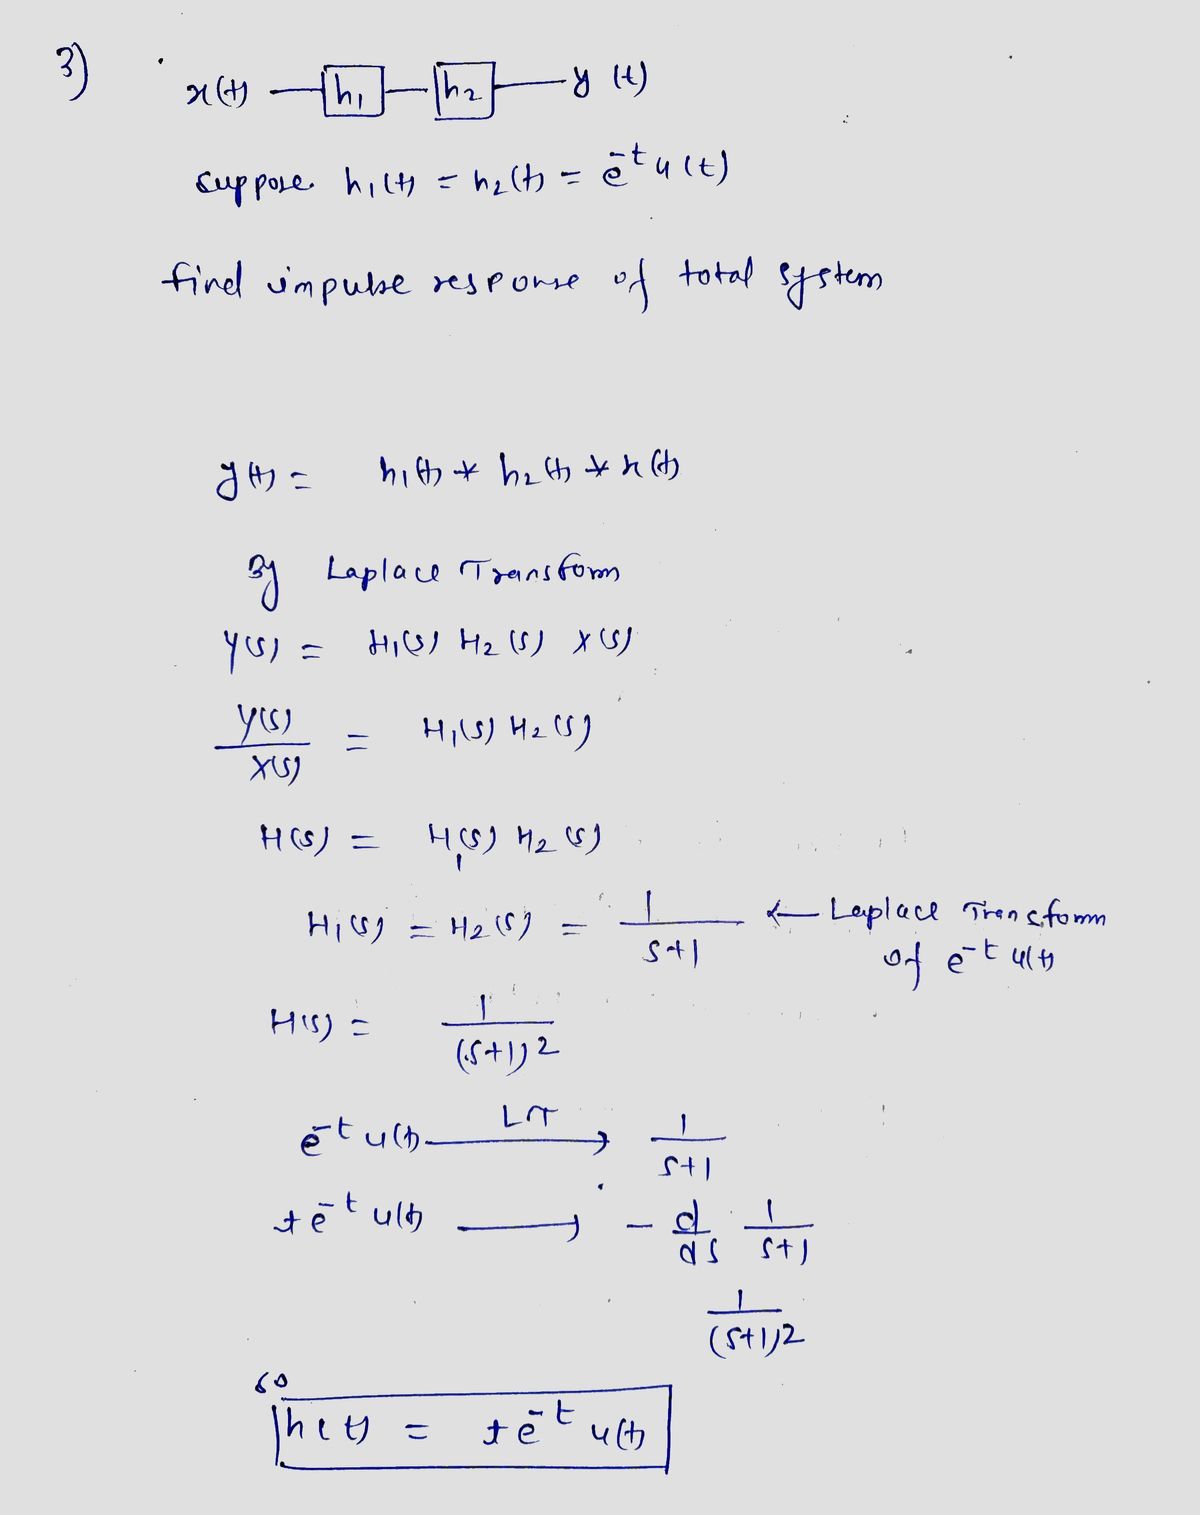 3)
x(t) h1 h2 y(t)
suppose h1(t) = h2(t) = e^-t u(t)
find impulse response of total system
y(t) = h1(t) * h2(t) * x(t)
By Laplace Transform
Y(s) = H1(s) H2(s) X(s)
Y(s)/X(s) = H1(s) H2(s)
H(s) = H1(s) H2(s)
H1(s) = H2(s) = 1/(s+1) ← Laplace Transform
of e^-t u(t)
H(s) = 1/(s+1)^2
e^-t u(t) LT → 1/(s+1)
t e^-t u(t) → - d/ds 1/(s+1)
1/(s+1)^2
so
h(t) = t e^-t u(t)